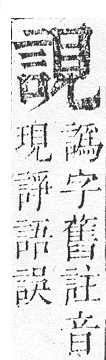 誢
譌字舊註音
現諍語誤